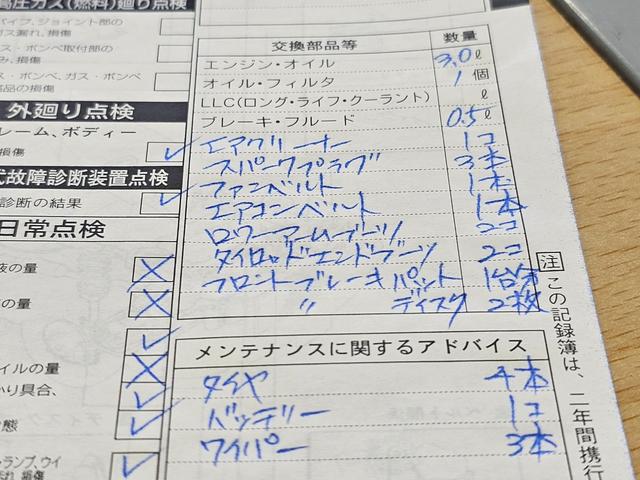 高圧ガス(燃料)廻り点検
パイプ、ジョイント部の
ガス漏れ、損傷
ガス・ボンベ取付部の
み、損傷
ス・ボンベ、ガス・ボンベ
部品の損傷
外廻り点検
レーム、ボディー
損傷
式故障診断装置点検
診断の結果
日常点検
液の量
の量
イルの量
かり具合、
態
ランプ、ウイ
汚れ、損傷
交換部品等 数量
エンジン・オイル 3.0ℓ
オイル・フィルタ 1個
LLC(ロング・ライフ・クーラント) ℓ
ブレーキ・フルード 0.5ℓ
エアクリーナー 1コ
スパークプラグ 3本
ファンベルト 1本
エアコンベルト 1本
ロワーアームブーツ 2コ
タイロッドエンドブーツ 2コ
フロントブレーキパット 1台分
〃 ディスク 2枚
メンテナンスに関するアドバイス
タイヤ 4本
バッテリー 1コ
ワイパー 3本
注 この記録簿は、二年間携行